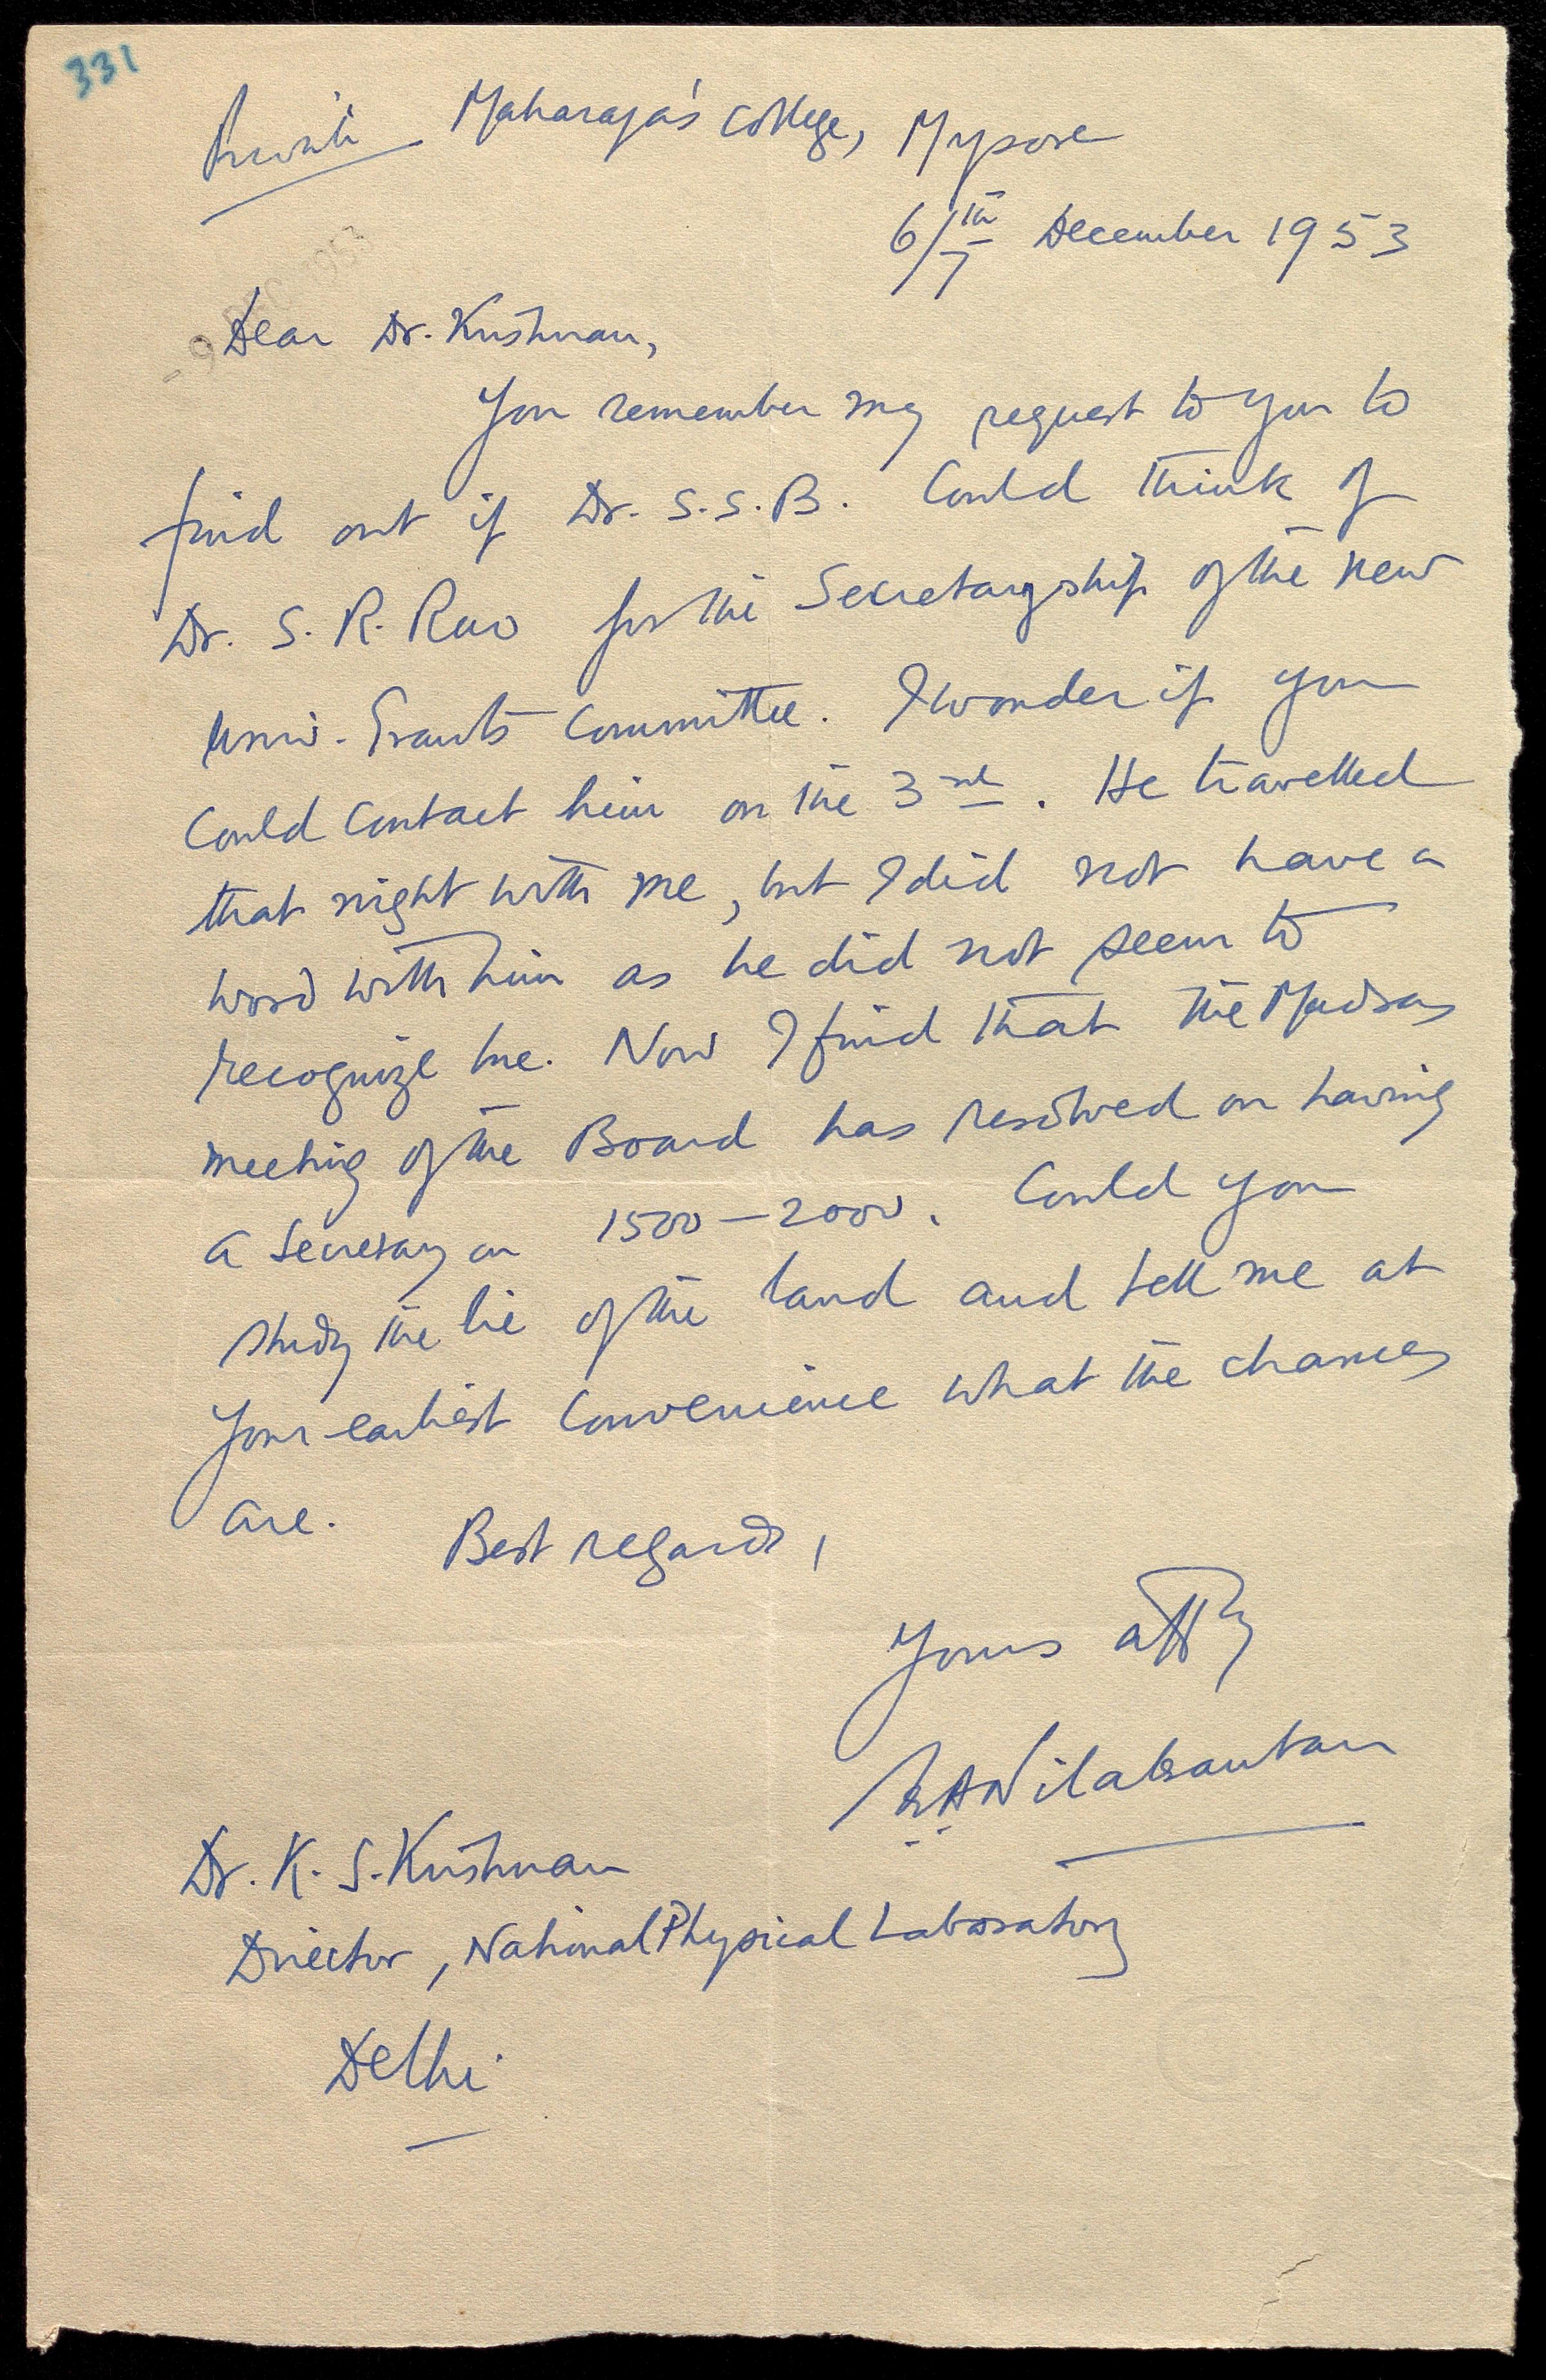 331
Private Maharaja's College, Mysore
6/7th December 1953
- 9 DEC 1953
Dear Dr. Krishnan,
You remember my request to you to
find out if Dr. S.S.B. could think of
Dr. S. R. Rao for the Secretaryship of the new
Univ. Grants Committee. I wonder if you
could contact him on the 3rd. He travelled
that night with me, but I did not have a
word with him as he did not seem to
recognize me. Now I find that the Madras
meeting of the Board has resolved on having
a Secretary on 1500-2000. Could you
study the lie of the land and tell me at
your earliest convenience what the chances
are. Best regards,
Yours affly
K.A. Nilakantan
Dr. K. S. Krishnan
Director, National Physical Laboratory
Delhi